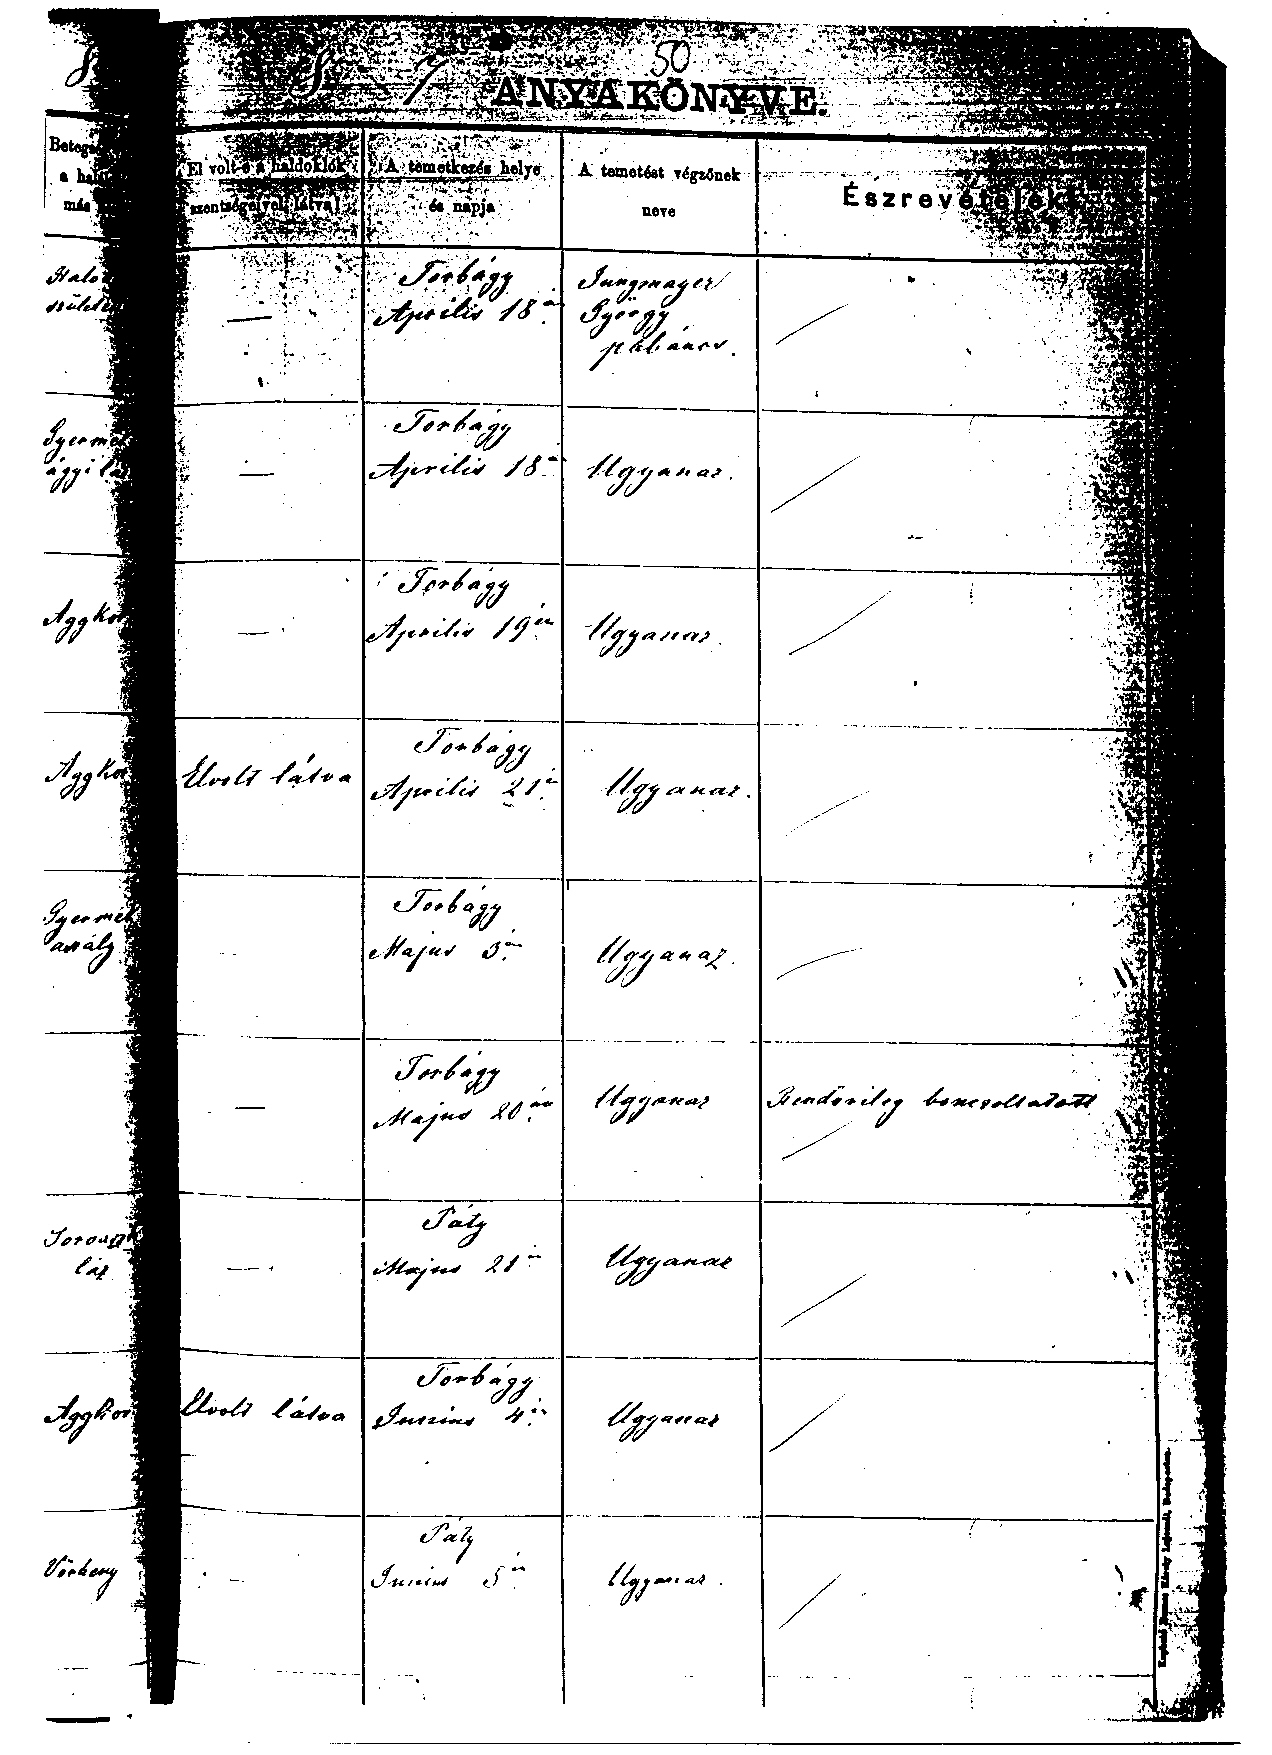 50
ANYAKÖNYVE.
Beteg
a hal
más
El volt-e a haldoklók
szentségeivel látva?
A temetkezés helye
és napja
A temetést végzőnek
neve
Észrevételek
Halo
szület
—
Torbágy
Április 18án
Jungmayer
György
plébános.
Gyerme
ágyi lá
—
Torbágy
Április 18án
Ugyanaz.
Aggkor
—
Torbágy
Április 19én
Ugyanaz.
Aggkor
Elvolt látva
Torbágy
Április 21én
Ugyanaz.
Gyermek
aszály
Torbágy
Május 3án
Ugyanaz.
—
Torbágy
Május 20án
Ugyanaz
Rendőrileg bonczoltatott
Torougy
láz
—
Páty
Május 21én
Ugyanaz
Aggkor
Elvolt látva
Torbágy
Junius 4én
Ugyanaz
Vörheny
—
Páty
Junius 5én
Ugyanaz.